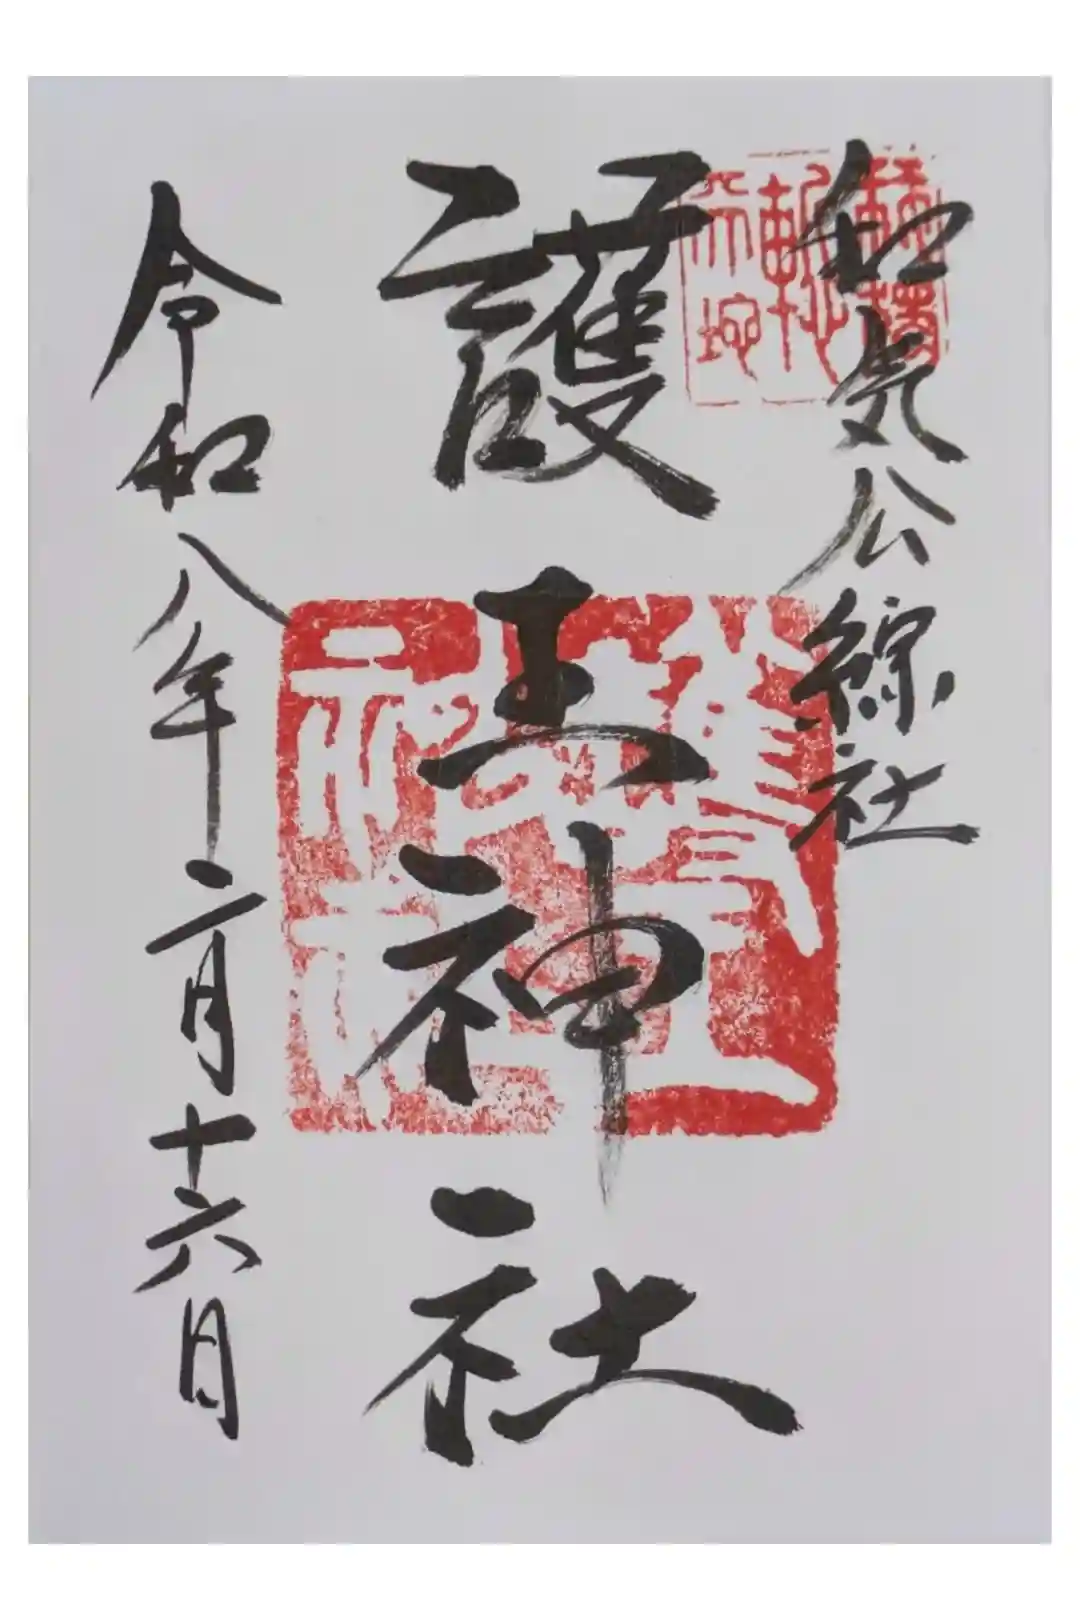 和気公綜社
護王神社
令和八年二月十六日